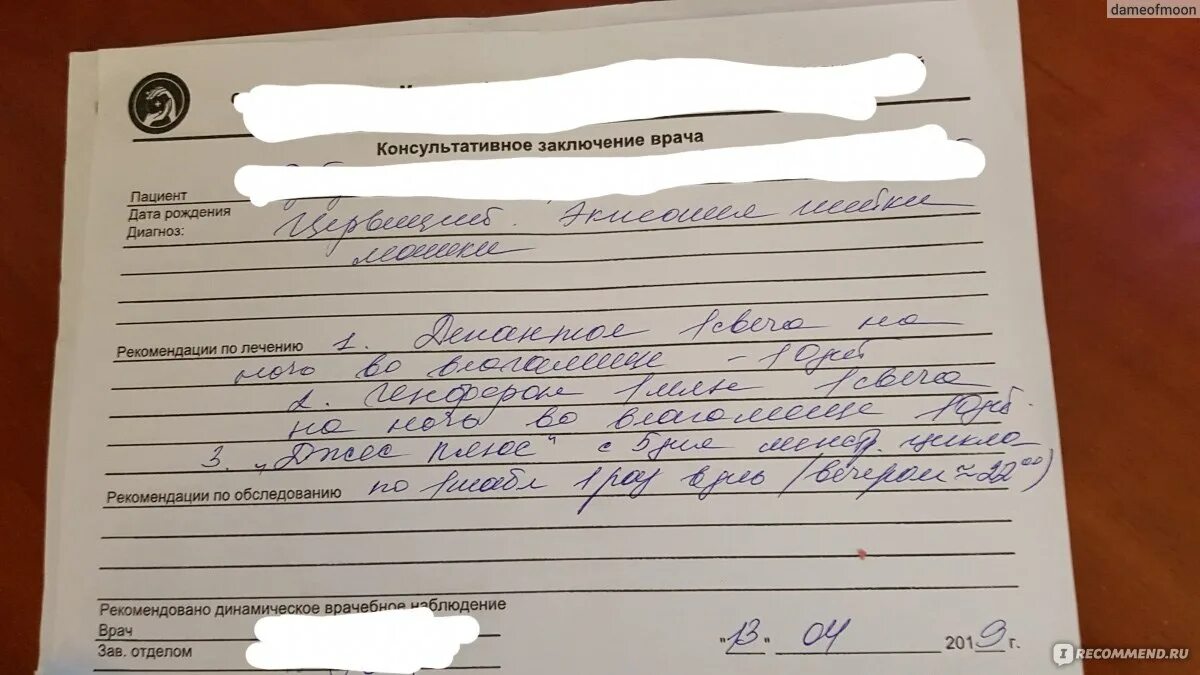 dameofmoon
Консультативное заключение врача
Пациент
Дата рождения
Диагноз: Цервицит. Эктопия шейки
матки
Рекомендации по лечению 1. Депантол 1 свеча на
ночь во влагалище - 10 дней
2. Генферон 1 млн 1 свеча
на ночь во влагалище 10 дн.
3. "Джес плюс" с 5 дня менстр. цикла
Рекомендации по обследованию по 1 табл 1 раз в день (вечером ~ 22⁰⁰)
Рекомендовано динамическое врачебное наблюдение
Врач
Зав. отделом
"13" 04 2019 г.
IRECOMMEND.RU